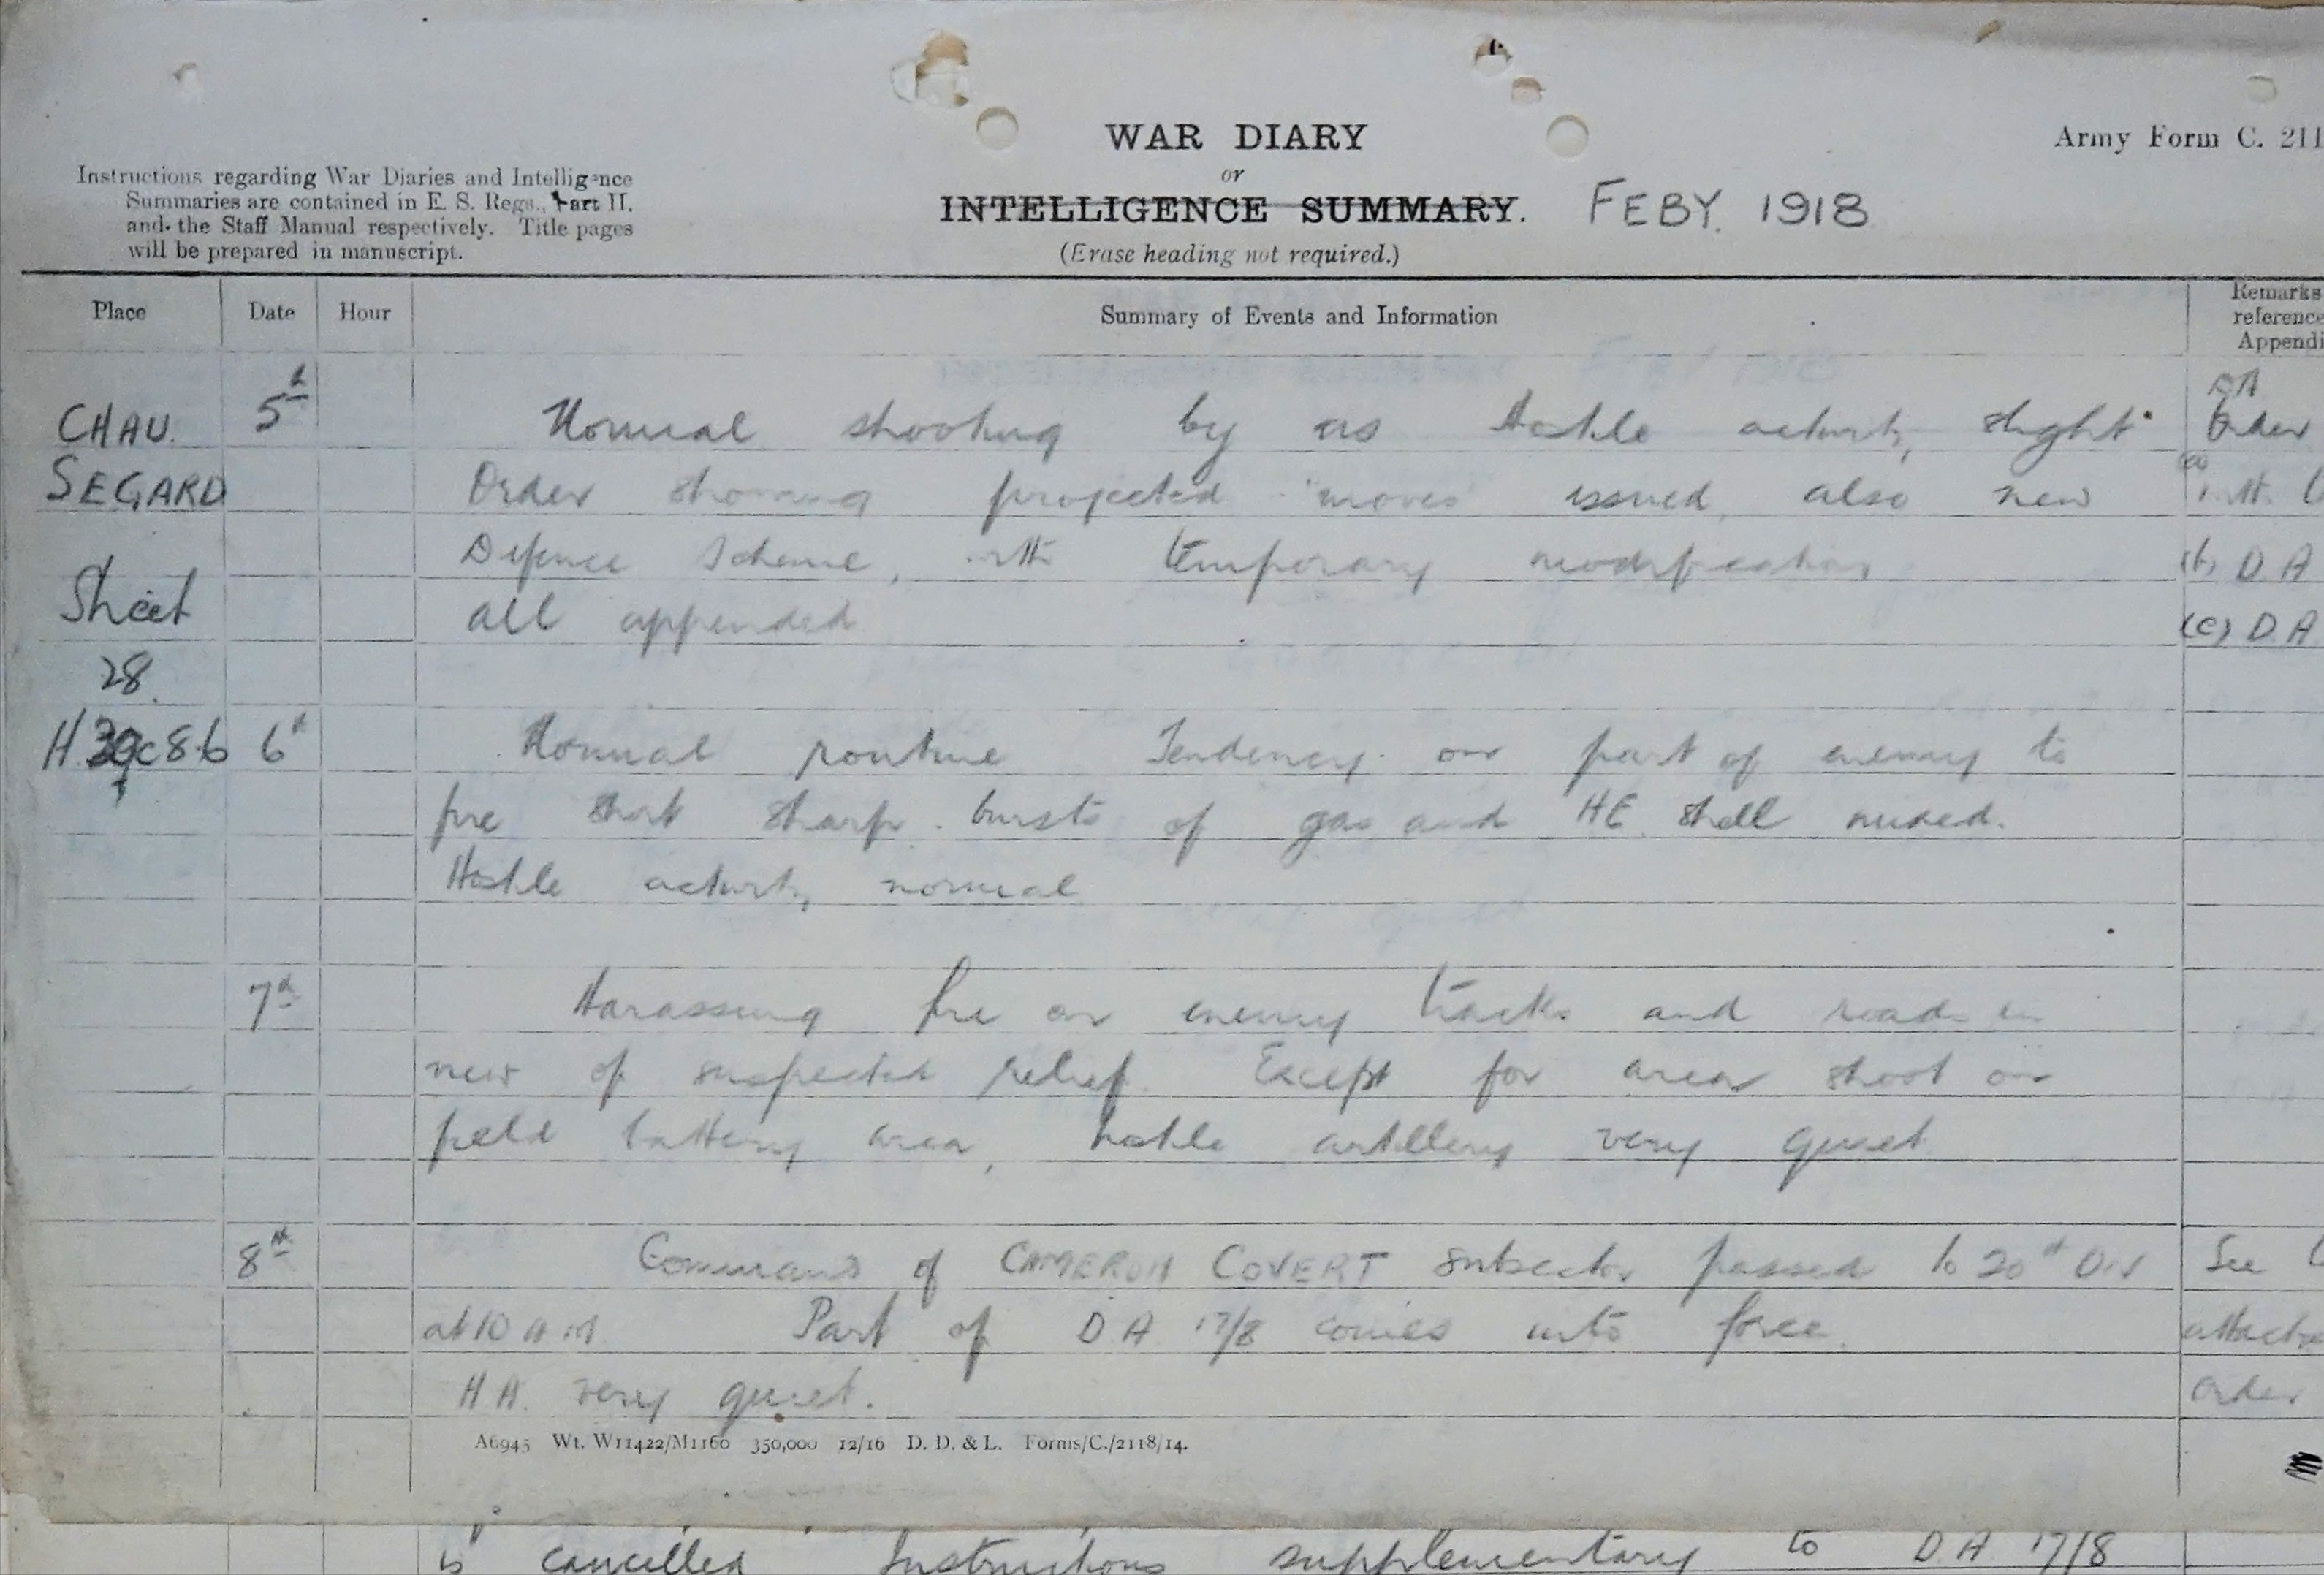 WAR DIARY
or
INTELLIGENCE SUMMARY.
(Erase heading not required.)
FEBY. 1918
Army Form C. 211
Instructions regarding War Diaries and Intelligence
Summaries are contained in E. S. Regs., Part II.
and the Staff Manual respectively. Title pages
will be prepared in manuscript.
Place Date Hour Summary of Events and Information Remarks
reference
Appendi
CHAU. 5th Normal shooting by us Hostile activity slight. Order
SEGARD Order showing projected "moves" issued, also new
Defence Scheme, with temporary modification (b) D.A
Sheet all appended (c) D.A
28.
H 8.6 6th Normal routine Tendency on part of enemy to
fire short sharp bursts of gas and HE shell
Hostile activity normal
7th Harassing fire on enemy tracks and roads in
view of suspected relief. Except for area shoot on
field battery area, hostile artillery very quiet
8th Command of CAMERON COVERT subsector passed to 20th Div See
at 10 AM Part of DA 17/8 comes into force. attached
HA. very quiet. order
A6945 Wt. W11422/M1160 350,000 12/16 D. D. & L. Forms/C./2118/14.
is cancelled Instructions supplementary to DA 17/8